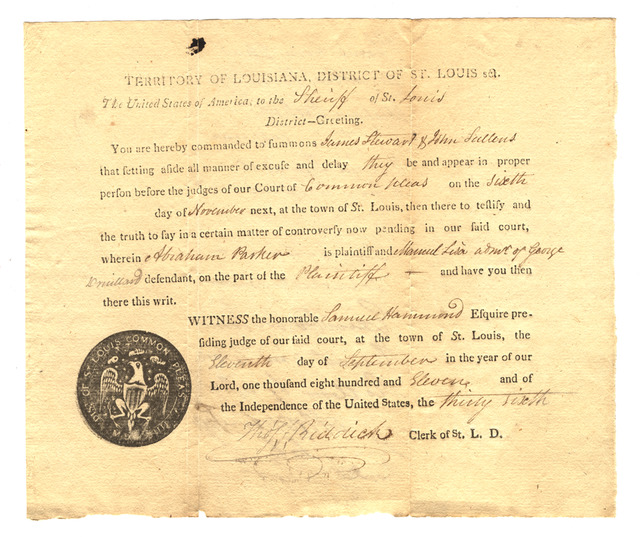 TERRITORY OF LOUISIANA, DISTRICT OF ST. LOUIS sct.
The United States of America, to the Sheriff of St. Louis
District—Greeting.
You are hereby commanded to summons James Stewart & John Sullens
that setting aside all manner of excuse and delay they be and appear in proper
person before the judges of our Court of Common pleas on the sixth
day of November next, at the town of St. Louis, then there to testify and
the truth to say in a certain matter of controversy now pending in our said court,
wherein Abraham Parker is plaintiff and Manuel Lisa admr. of George
defendant, on the part of the Plaintiff — and have you then
there this writ.
WITNESS the honorable Samuel Hammond Esquire pre-
siding judge of our said court, at the town of St. Louis, the
Eleventh day of September in the year of our
Lord, one thousand eight hundred and Eleven, and of
the Independence of the United States, the thirty sixth
Thos. F. Riddick Clerk of St. L. D.
ST. LOUIS COMMON PLEAS